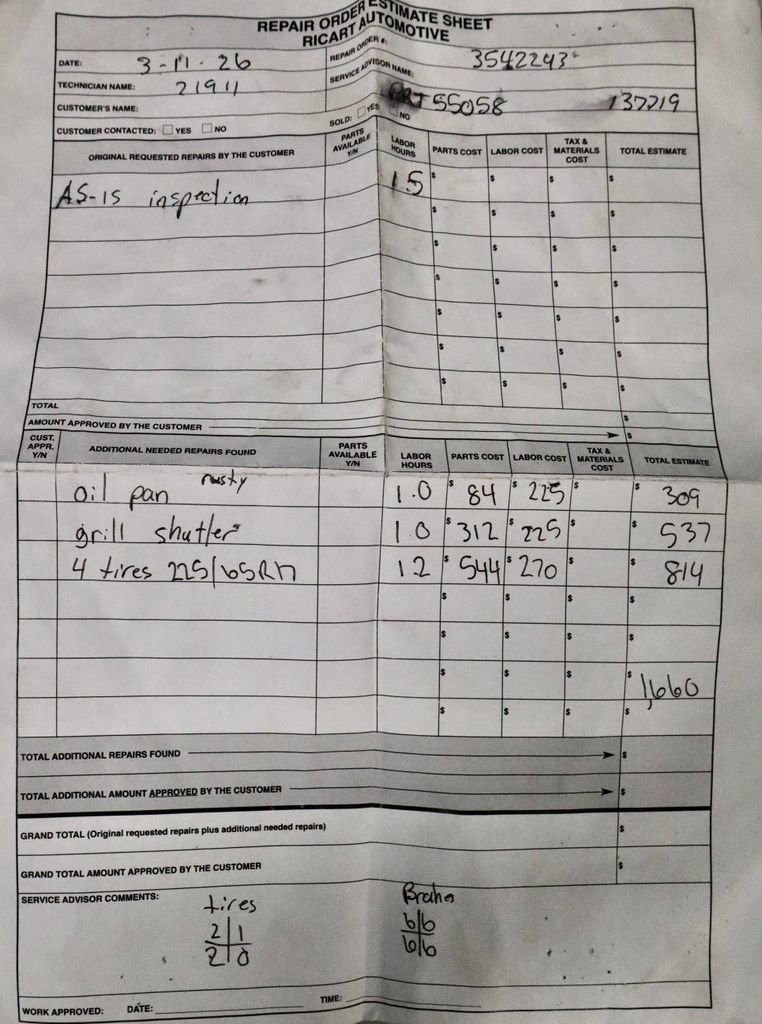 REPAIR ORDER ESTIMATE SHEET
RICART AUTOMOTIVE
DATE: 3-11-26 REPAIR ORDER #: 3542243
TECHNICIAN NAME: 21911 SERVICE ADVISOR NAME:
CUSTOMER'S NAME: 55058 137719
CUSTOMER CONTACTED: YES NO SOLD: YES NO
ORIGINAL REQUESTED REPAIRS BY THE CUSTOMER PARTS AVAILABLE Y/N LABOR HOURS PARTS COST LABOR COST TAX & MATERIALS COST TOTAL ESTIMATE
AS-IS inspection 1.5 $ $ $ $
$ $ $ $
$ $ $ $
$ $ $ $
$ $ $ $
$ $ $ $
$ $ $ $
TOTAL $
AMOUNT APPROVED BY THE CUSTOMER $
CUST. APPR. Y/N ADDITIONAL NEEDED REPAIRS FOUND PARTS AVAILABLE Y/N LABOR HOURS PARTS COST LABOR COST TAX & MATERIALS COST TOTAL ESTIMATE
oil pan rusty 1.0 $ 84 $ 225 $ $ 309
grill shutter 1.0 $ 312 $ 225 $ $ 537
4 tires 225/65R17 1.2 $ 544 $ 270 $ $ 814
$ $ $ $
$ $ $ $
$ $ $ $ 1,660
$ $ $ $
TOTAL ADDITIONAL REPAIRS FOUND $
TOTAL ADDITIONAL AMOUNT APPROVED BY THE CUSTOMER $
GRAND TOTAL (Original requested repairs plus additional needed repairs) $
GRAND TOTAL AMOUNT APPROVED BY THE CUSTOMER $
SERVICE ADVISOR COMMENTS: tires Brakes
2 1 6 6
2 0 6 6
WORK APPROVED: DATE: TIME: